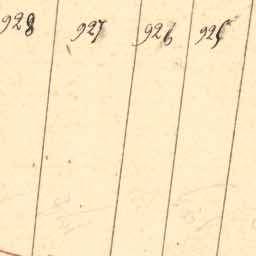 928 927 926 925